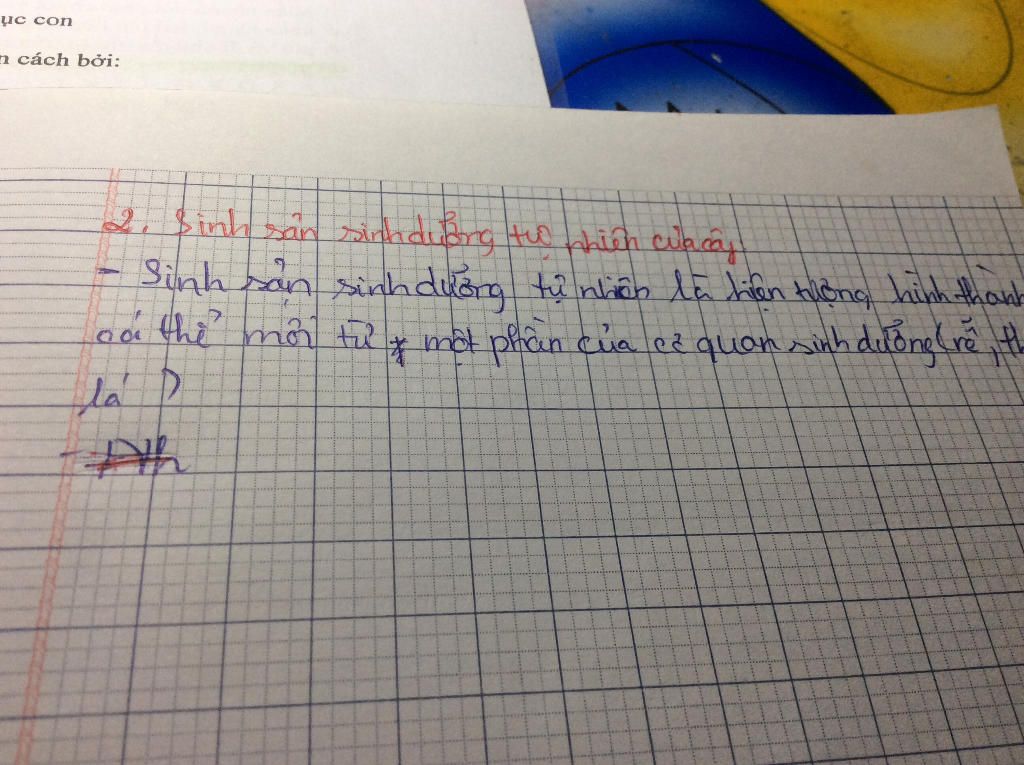 ục con
n cách bởi:
2. Sinh sản sinh dưỡng tự nhiên của cây
- Sinh sản sinh dưỡng tự nhiên là hiện tượng hình thành
cá thể mới từ một phần của cơ quan sinh dưỡng (rễ, th
lá )